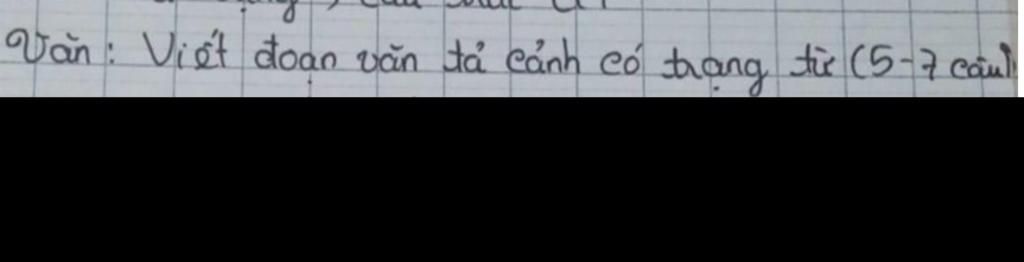 Văn: Viết đoạn văn tả cảnh có trạng từ (5-7 câu)